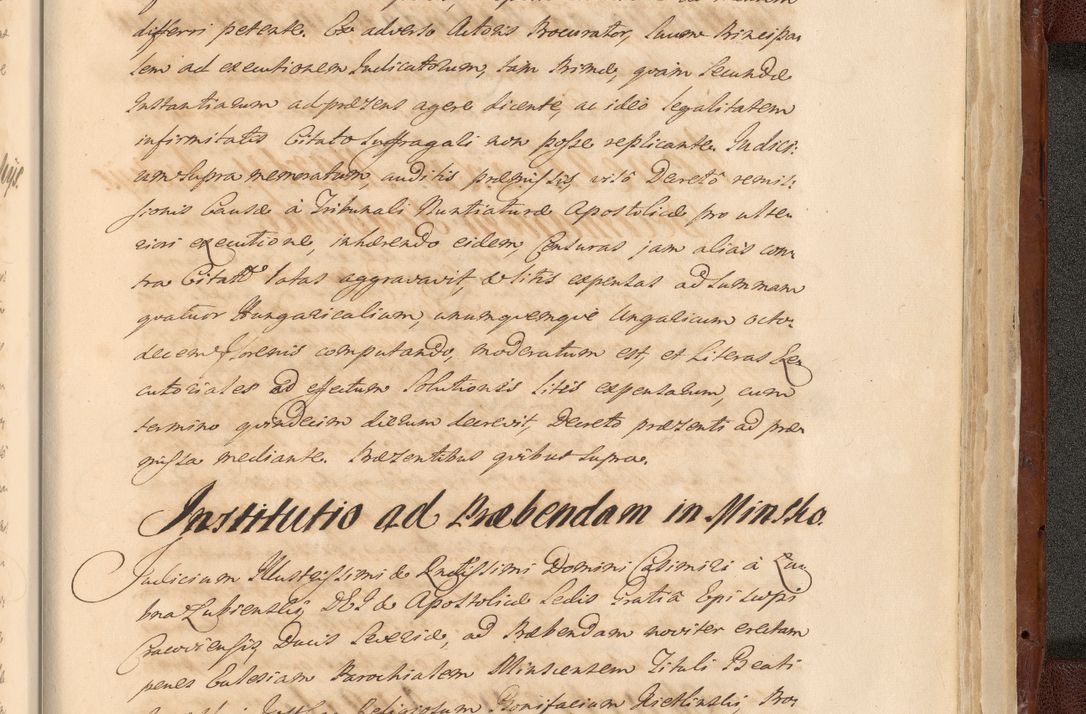 differri petente. Ex adverso Actoris Procurator, suum Principa-
lem ad executionem Judicatorum, tam Primæ, quàm Secundæ
Instantiarum ad præsens agere dicente, ac ideò legalitatem
infirmitatis Citato suffragali non posse replicante. Judici-
um supra memoratum, auditis præmissis, visô Decretô remis-
sionis Causæ à Tribunali Nuntiaturæ Apostolicæ pro ulte-
riori executione, inhærendo eidem, Censuras jam alias con-
tra Citatũ latas aggravavit, & litis expensas ad summam
quatuor Hungaricalium, unumquemque Ungaricum octo-
decem florenis computando, moderatum est, et Literas Exe-
cutoriales ad effectum solutionis litis expensarum, cum
termino quindecim dierum decrevit, Decretô præsenti ad præ-
missa mediante. Præsentibus quibus supra.
Institutio ad Præbendam in Minsko.
Judicium Illustrissimi & Rndissimi Domini Casimiri à Łu-
bna Łubienski, DEI & Apostolicæ Sedis Gratiâ Episcopi
Cracoviensis, Ducis Severiæ, ad Præbendam noviter erectam
penes Ecclesiam Parochialem Minscensem Tituli Beati
Religiosum Bonifacium